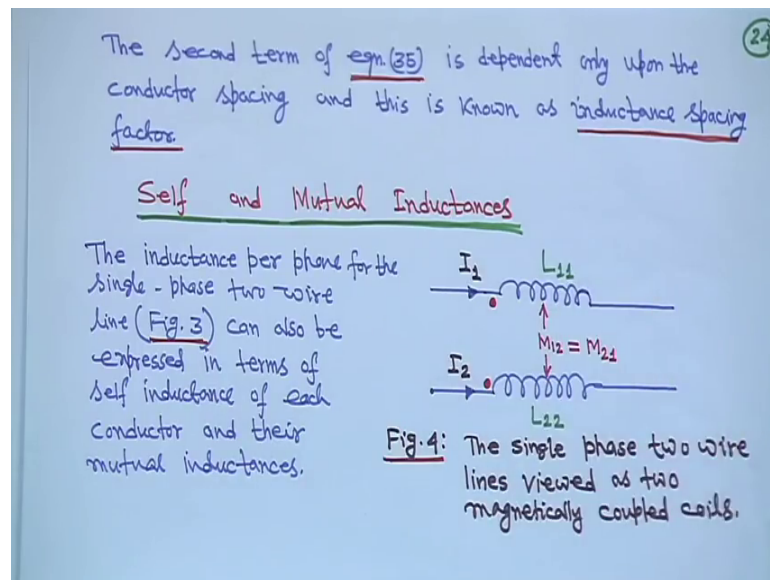 24
The second term of eqn.(35) is dependent only upon the
conductor spacing and this is known as inductance spacing
factor.
Self and Mutual Inductances
The inductance per phone for the
single-phase two-wire
line (Fig. 3) can also be
expressed in terms of
self inductance of each
conductor and their
mutual inductances.
I1 L11
M12 = M21
I2
L22
Fig.4: The single phase two wire
lines viewed as two
magnetically coupled coils.